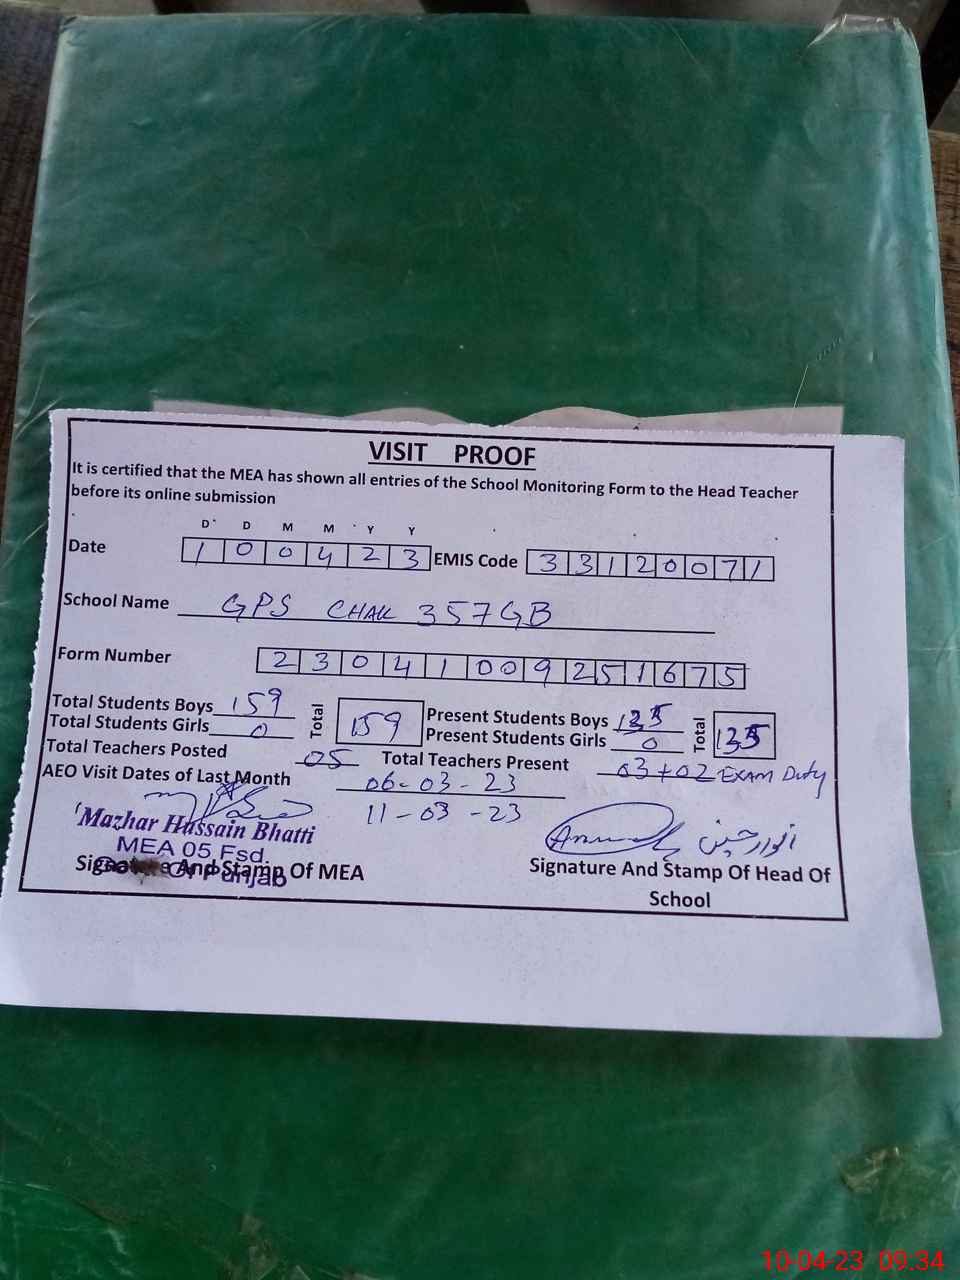 VISIT PROOF
It is certified that the MEA has shown all entries of the School Monitoring Form to the Head Teacher
before its online submission
D D M M Y Y
Date 1 0 0 4 2 3 EMIS Code 3 3 1 2 0 0 7 1
School Name GPS CHAK 357GB
Form Number 2 3 0 4 1 0 0 9 2 5 1 6 7 5
Total Students Boys 159 Total 159 Present Students Boys 135 Total 135
Total Students Girls 0 Present Students Girls 0
Total Teachers Posted 05 Total Teachers Present 03+02 EXAM Duty
AEO Visit Dates of Last Month 06-03-23
11-03-23
Mazhar Hussain Bhatti
MEA 05 Fsd.
Signature And Stamp Of MEA
Of Punjab
انوار حسین
Signature And Stamp Of Head Of
School
10-04-23 09:34